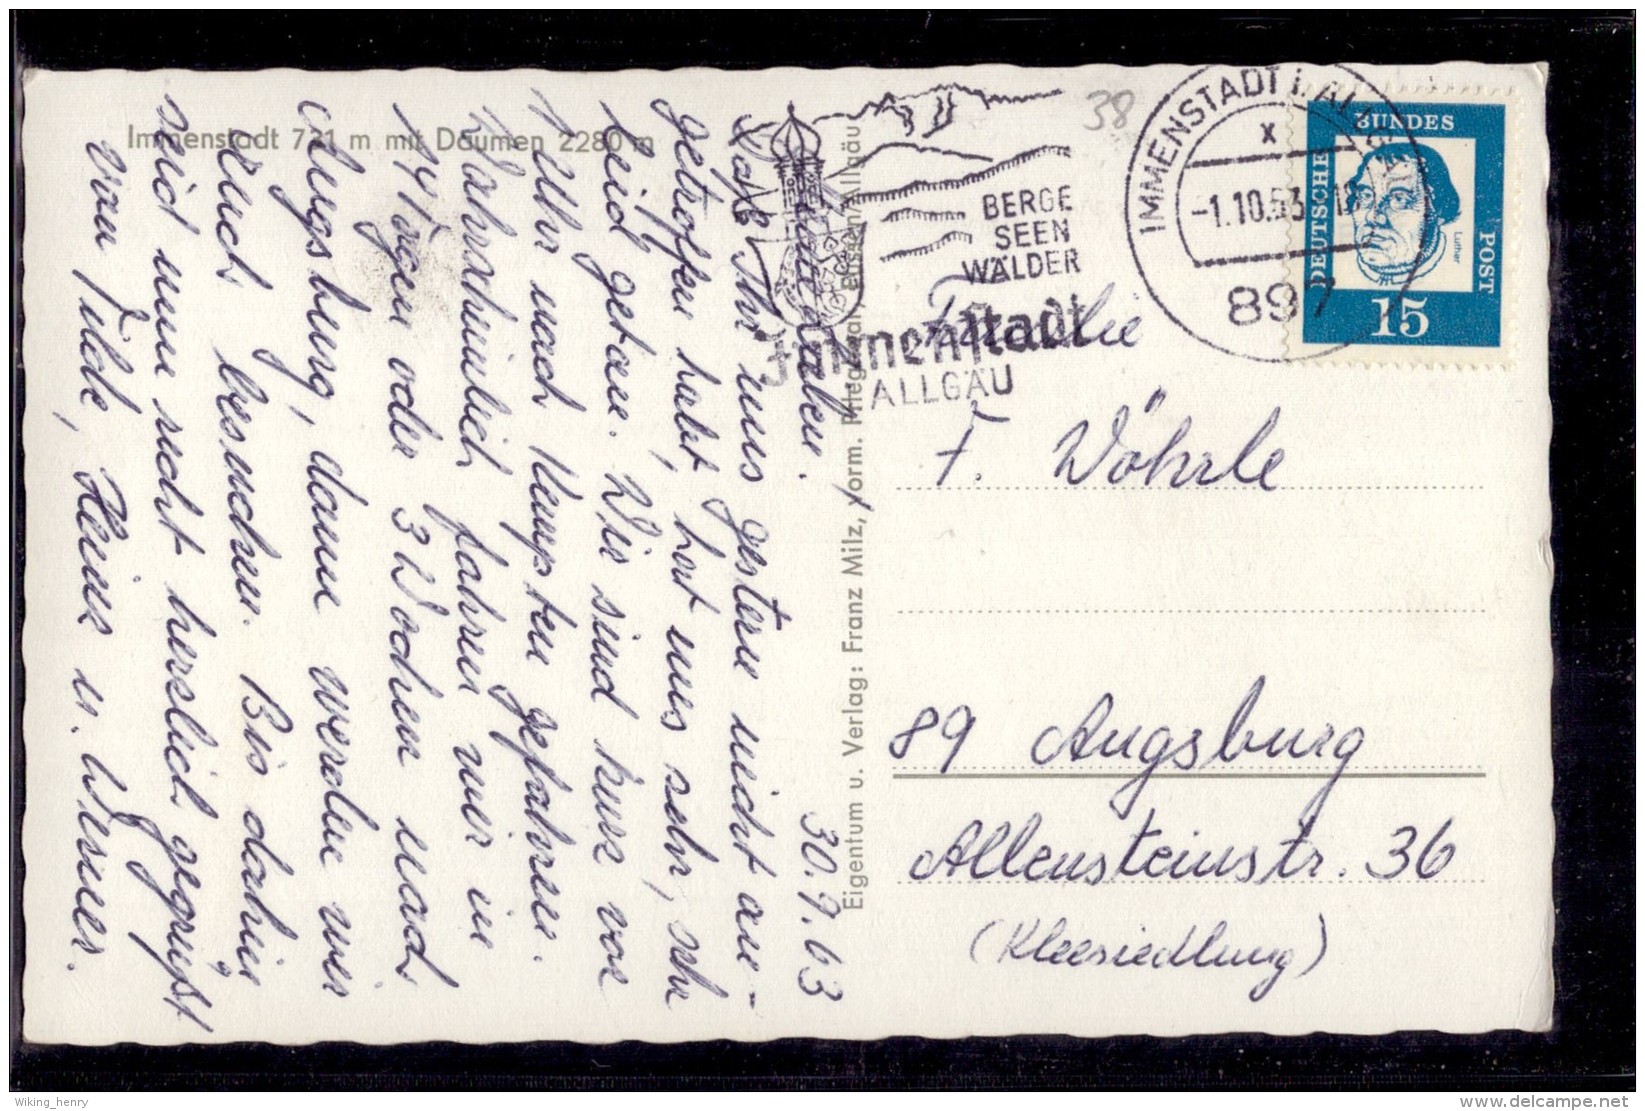 Immenstadt 731 m mit Daumen 2280 m
38
BERGE
SEEN
WÄLDER
Immenstadt
ALLGÄU
IMMENSTADT i. ALLGÄU
x
-1.10.63.-18
897
DEUTSCHE
BUNDES
POST
Luther
15
Eigentum u. Verlag: Franz Milz, vorm.
30.9.63
Ihr Lieben!
Daß Ihr uns gestern nicht an-
getroffen habt, hat uns sehr, sehr
leid getan. Wir sind kurz vor
1 Uhr nach Kempten gefahren.
Wahrscheinlich fahren wir in
14 Tagen oder 3 Wochen nach
Augsburg, dann werden wir
Euch besuchen. Bis dahin
seid nun recht herzlich gegrüßt
von Tilde, Heinz u. Werner.
Familie
F. Wöhrle
89 Augsburg
Allensteinstr. 36
(Kleesiedlung)
Wiking_henry
delcampe.net